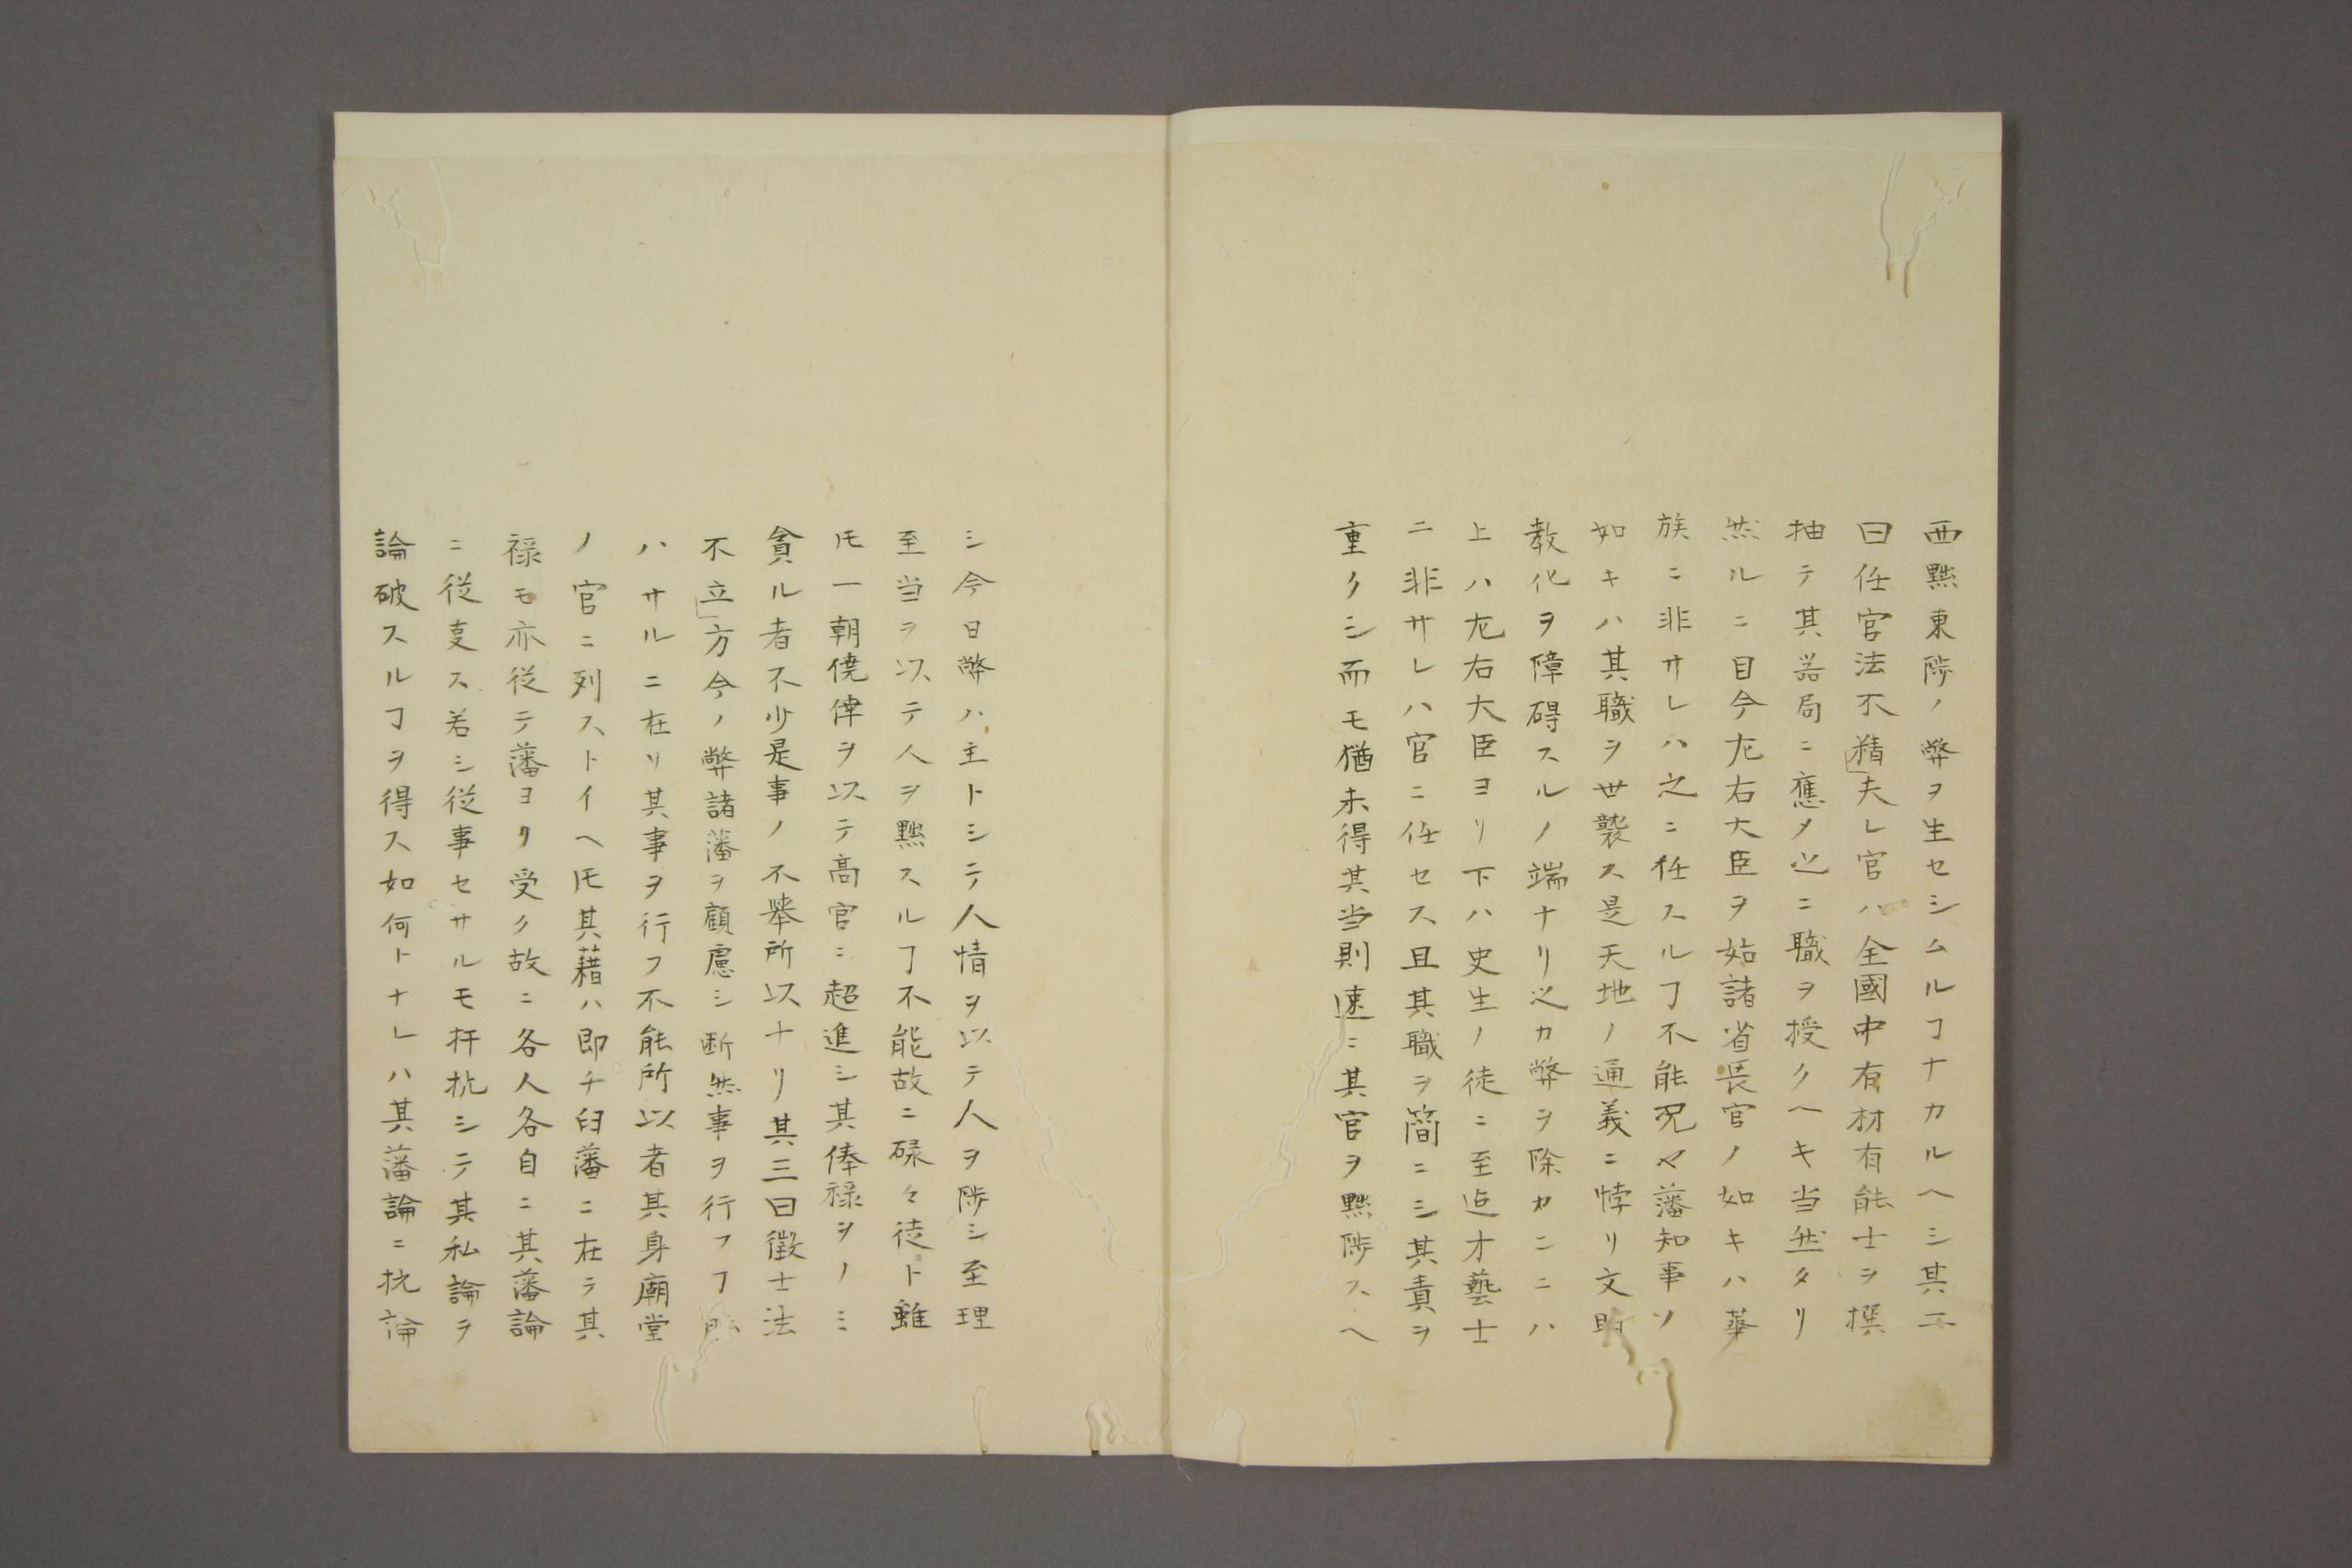 西黙東陟ノ弊ヲ生セシムルヿナカルヘシ其二
曰任官法不精夫レ官ハ全國中有材有能士ヲ撰
抽テ其器局ニ應メ之ニ職ヲ授クヘキ当然タリ
然ルニ目今尤右大臣ヲ始諸省長官ノ如キハ華
族ニ非サレハ之ニ任スルヿ不能况ヤ藩知事ノ
如キハ其職ヲ世襲ス是天地ノ通義ニ悖リ文明
教化ヲ障碍スルノ端ナリ之カ弊ヲ除カンニハ
上ハ尤右大臣ヨリ下ハ史生ノ徒ニ至迠才藝士
ニ非サレハ官ニ任セス且其職ヲ簡ニシ其責ヲ
重クシ而モ猶未得其当則速ニ其官ヲ黙陟スヘ
シ今日弊ハ主トシテ人情ヲ以テ人ヲ陟シ至理
至当ヲ以テ人ヲ黙スルヿ不能故ニ碌々徒ト雖
𪜈一朝僥倖ヲ以テ高官ニ超進シ其俸禄ヲノミ
貪ル者不少是事ノ不擧所以ナリ其三曰徴士法
不立方今ノ弊諸藩ヲ顧慮シ断然事ヲ行フヿ能
ハサルニ在リ其事ヲ行フ不能所以者其身廟堂
ノ官ニ列ストイヘ𪜈其藉ハ即チ旧藩ニ在テ其
禄モ亦従テ藩ヨリ受ク故ニ各人各自ニ其藩論
ニ従支ス若シ従事セサルモ扞抗シテ其私論ヲ
論破スルヿヲ得ス如何トナレハ其藩論ニ抗論